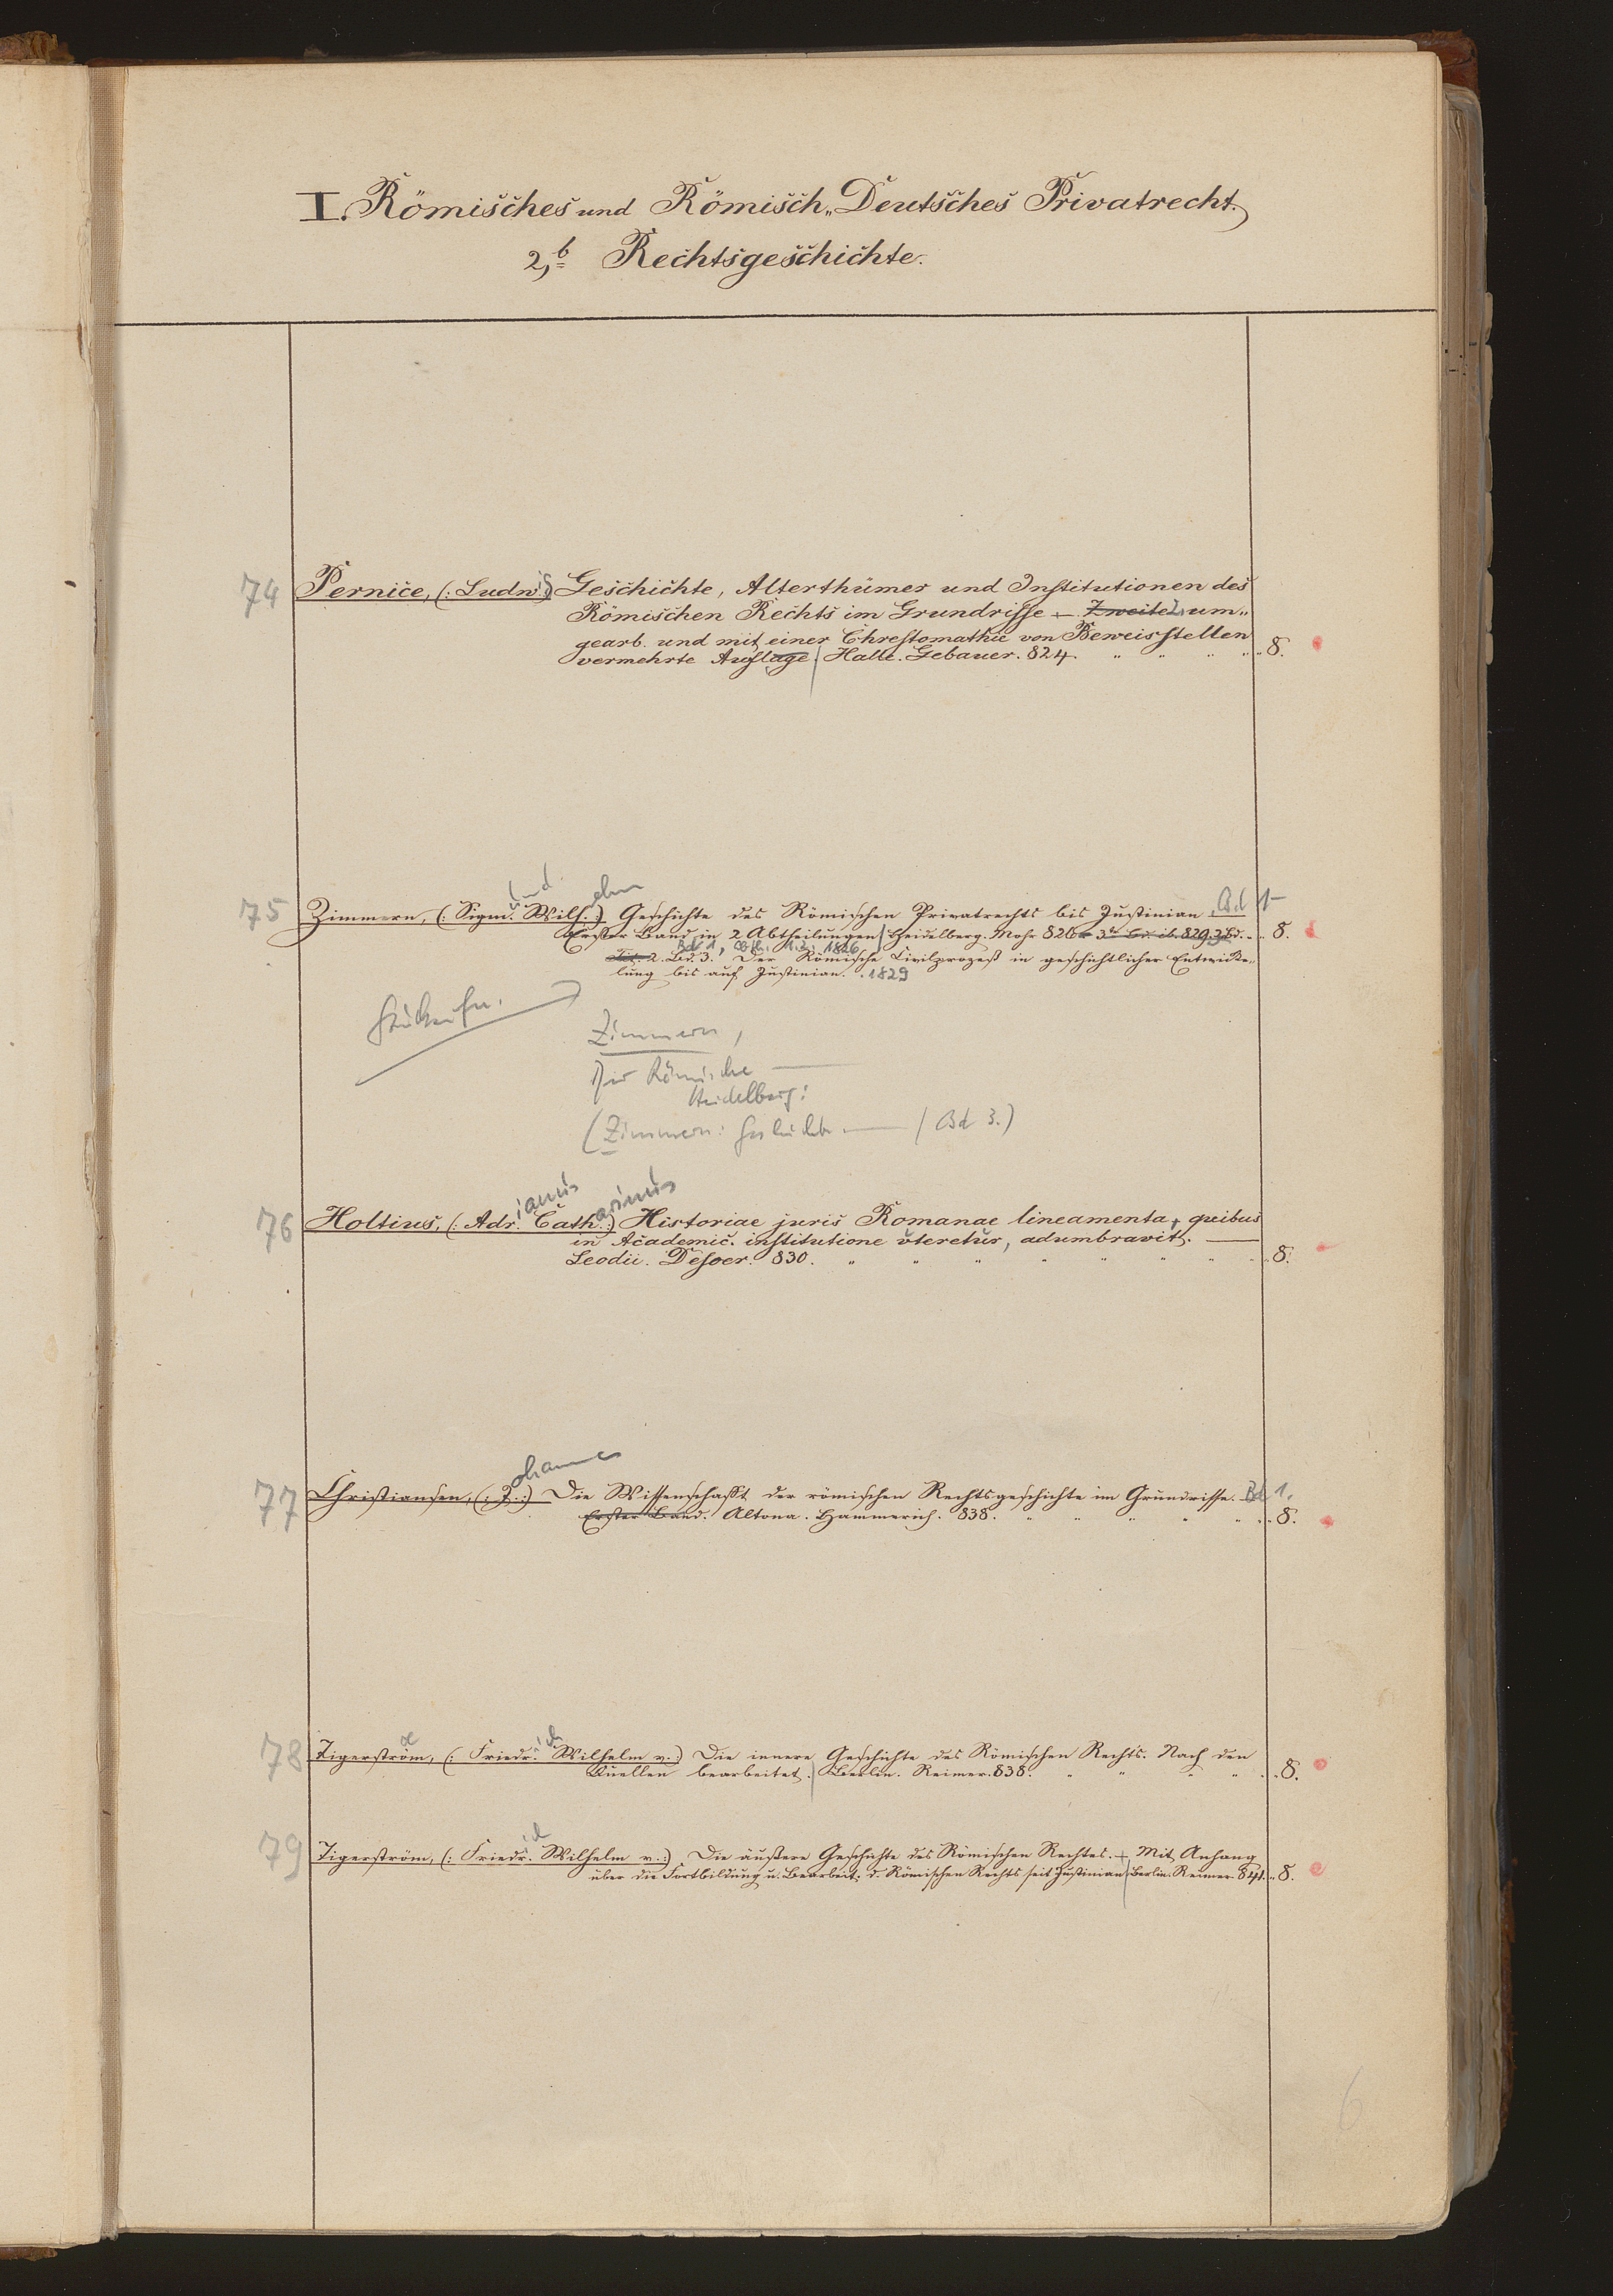 I. Römisches und Römisch„Deutsches Privatrecht.
2,b Rechtsgeschichte.
74 Pernice, (: Ludw.ig :) Geschichte, Alterthümer und Institutionen des
Römischen Rechts im Grundrisse — Zweite 2. um„
gearb. und mit einer Chrestomathie von Beweisstellen
vermehrte Auflage. Halle. Gebauer. 824. " " " " " 8.
und elm
75 Zimmern, (: Sigm. Wilh. :) Geschichte des Römischen Privatrechts bis Justinian. Bd 1-
Erster Band in 2 Abtheilungen Heidelberg. Mohr 826 3r Bd. ib. 829. 3 Bd. 8.
Bd 1, Abth. 1. 2. 1826.
2. Bd. 3. Der Römische Civilprozeß in geschichtlicher Entwicke„
lung bis auf Justinian. 1829
Zimmern,
Der Römische —
Heidelberg:
(Zimmern: Geschichte — / Bd 3.)
ianus arinus
76 Holtius, (: Adr. Cath. :) Historiae juris Romanae lineamenta, quibus
in Academic. institutione uteretur, adumbravit. —
Leodii. Desoer. 830. " " " " " " " 8.
ohannes
77 Christiansen, (: J. :) Die Wissenschafft der römischen Rechtsgeschichte im Grundrisse. Bd 1.
Erster Band. Altona. Hammerich. 838. " " " " " 8.
e ich
78 Tigerström, (: Friedr. Wilhelm v. :) Die innere Geschichte des Römischen Rechts. Nach den
Quellen bearbeitet. Berlin. Reimer. 838. " " " " 8.
ich
79 Tigerström, (: Friedr. Wilhelm v. :) Die äußere Geschichte des Römischen Rechtes. + Mit Anhang
über die Fortbildung u. Bearbeit. d. Römischen Rechts seit Justinian Berlin. Reimer. 841. " 8.
6